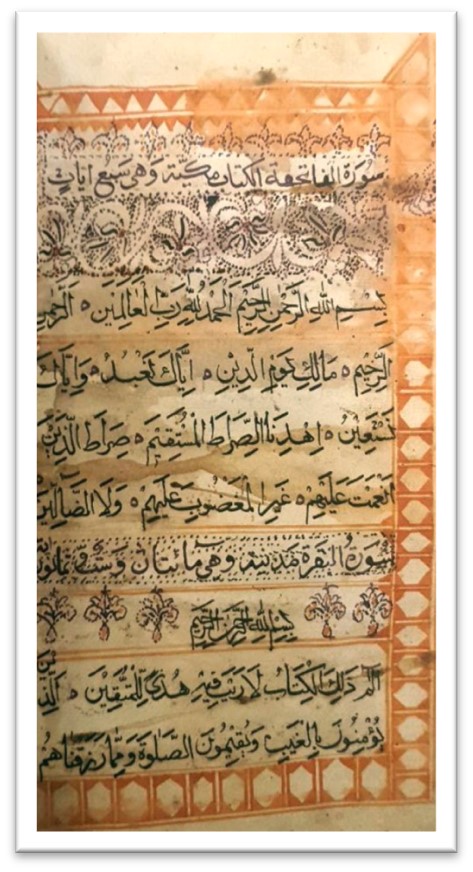 سورة الفاتحة الكتاب مكية وهي سبع ايات
بِسْمِ اللهِ الرَّحْمٰنِ الرَّحِيْمِ اَلْحَمْدُ لِلّٰهِ رَبِّ الْعَالَمِيْنَ ۝ الرَّحْمٰنِ
الرَّحِيْمِ ۝ مَالِكِ يَوْمِ الدِّيْنِ ۝ اِيَّاكَ نَعْبُدُ ۝ وَاِيَّاكَ
نَسْتَعِيْنُ ۝ اِهْدِنَا الصِّرَاطَ الْمُسْتَقِيْمَ ۝ صِرَاطَ الَّذِيْنَ
اَنْعَمْتَ عَلَيْهِمْ ۝ غَيْرِ الْمَغْضُوْبِ عَلَيْهِمْ ۝ وَلَا الضَّالِّيْنَ
سورة البقرة مدنية وهي مائتان وست وثمانون
بِسْمِ اللهِ الرَّحْمٰنِ الرَّحِيْمِ
الٓمّٓ ذٰلِكَ الْكِتَابُ لَا رَيْبَ فِيْهِ هُدًى لِلْمُتَّقِيْنَ ۝ الَّذِيْنَ
يُؤْمِنُوْنَ بِالْغَيْبِ وَيُقِيْمُوْنَ الصَّلٰوةَ وَمِمَّا رَزَقْنَاهُمْ